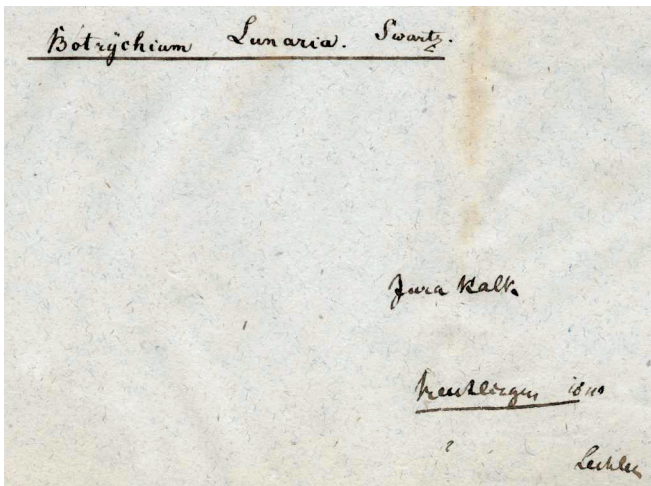 Botrÿchium Lunaria. Swartz.
Jura Kalk.
Reutlingen
Lechler